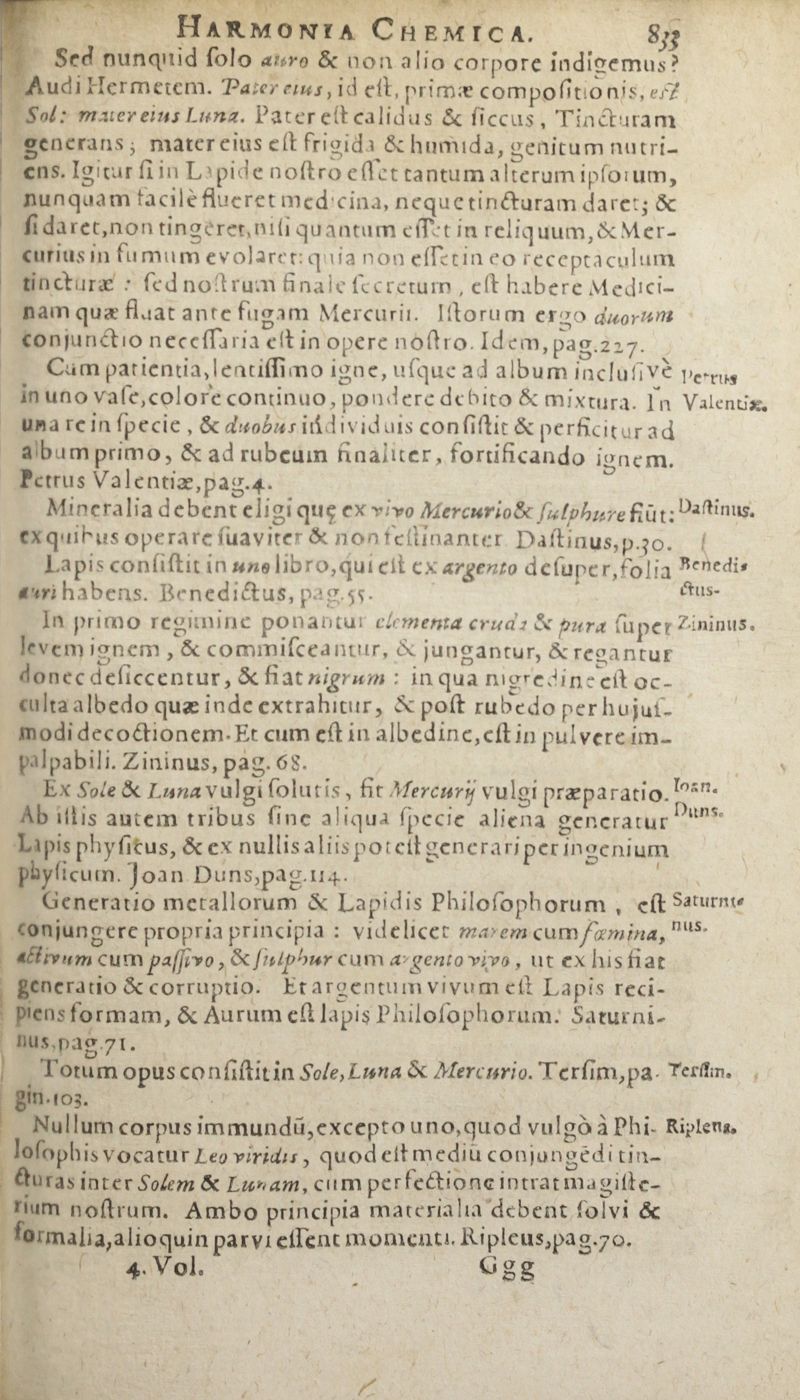 HARMONIA CHEMICA. 833
Sed nunquid ſolo auro & non alio corpore indigemus?
Audi Hermetem. Pater eius, id eſt, primæ compoſitionis, eſt
Sol: mater eius Luna. Pater eſt calidus & ſiccus, Tincturam
generans; mater eius eſt frigida & humida, genitum nutri-
ens. Igitur ſi in Lapide noſtro eſſet tantum alterum ipſorum,
nunquam facilè flueret medicina, neque tincturam daret; &
ſi daret, non tingeret, niſi quantum eſſet in reliquum, & Mer-
curius in fumum evolaret: quia non eſſet in eo receptaculum
tincturæ : ſed noſtrum finale ſecretum, eſt habere Medici-
nam quæ fluat ante fugam Mercurii. Iſtorum ergo duorum
conjunctio neceſſaria eſt in opere noſtro. Idem, pag.227.
Cum patientia, lentiſſimo igne, uſque ad album incluſivè Petrus
in uno vaſe, colore continuo, pondere debito & mixtura. In Valentiæ.
una re in ſpecie, & duobus individuis conſiſtit & perficitur ad
album primo, & ad rubeum finaliter, fortificando ignem.
Petrus Valentiæ, pag.4.
Mineralia debent eligi quę ex vivo Mercurio & ſulphure fiūt: Daſtinus.
ex quibus operare ſuaviter & non feſtinanter. Daſtinus, p.30.
Lapis conſiſtit in uno libro, qui eſt ex argento deſuper, folia Benedi-
auri habens. Benedictus, pag.55. ctus-
In primo regimine ponantur elementa cruda & pura ſuper Zininus.
levem ignem, & commiſceantur, & jungantur, & regantur
donec deſiccentur, & fiat nigrum : in qua nigredine eſt oc-
culta albedo quæ inde extrahitur, & poſt rubedo per hujuſ-
modi decoctionem. Et cum eſt in albedine, eſt in pulvere im-
palpabili. Zininus, pag. 68.
Ex Sole & Luna vulgi ſolutis, fit Mercurij vulgi præparatio. Ioan.
Ab iſtis autem tribus ſine aliqua ſpecie aliena generatur Duns.
Lapis phyſicus, & ex nullis aliis poteſt generari per ingenium
phyſicum. Joan Duns, pag.114.
Generatio metallorum & Lapidis Philoſophorum, eſt Saturni-
conjungere propria principia : videlicet marem cum fœmina, nus.
activum cum paſſivo, & ſulphur cum argento vivo, ut ex his fiat
generatio & corruptio. Et argentum vivum eſt Lapis reci-
piens formam, & Aurum eſt lapis Philoſophorum. Saturni-
nus, pag.71.
Totum opus conſiſtit in Sole, Luna & Mercurio. Terſim, pa- Terſſin.
gin.103.
Nullum corpus immundū, excepto uno, quod vulgò à Phi- Ripleus.
loſophis vocatur Leo viridis, quod eſt mediū conjungēdi tin-
cturas inter Solem & Lunam, cum perfectione intrat magiſte-
rium noſtrum. Ambo principia materialia debent ſolvi &
formalia, alioquin parvi eſſent momenti. Ripleus, pag.70.
4. Vol. Ggg